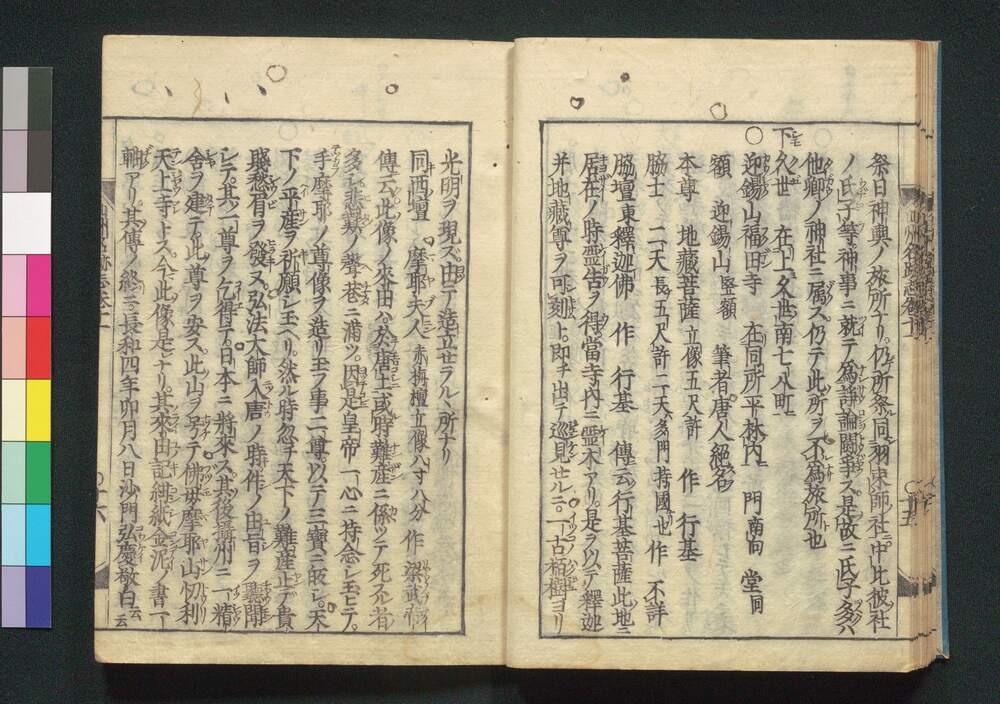 祭日神輿ノ旅所ナリ。仍テ所祭同羽束師社ニ中比彼社
ノ氏子等神事ニ就テ為諍論鬪爭ス。是故ニ氏子多ハ
他卿ノ神社ニ属ス。仍テ此所ヲ不為旅所也
下久世 在上久世南七八町ニ
○迎錫山福田寺 在同所平林内ニ 門南向 堂同
額 迎錫山 竪額 筆者唐人絕名
本尊 地藏菩薩 立像五尺許 作 行基
脇士 二天 長五尺許 二天多門持國也 作 不詳
脇壇東釋迦佛 作 行基 傳云行基菩薩此地ニ
居在ノ時霊告ヲ得當寺内ニ霊木アリ。是ヲ以テ釋迦
并地藏尊ヲ可刻ト。即チ出テ巡見セルニ。一古栢樹ヨリ
光明ヲ現ズ。由テ造立セラル所ナリ
同西壇 摩耶夫人 赤栴檀立像八寸八分 作 梁武帝
傳云此像ノ來由ハ於唐土或時難産ニ係ツテ死スル者
多シ悲歎ノ聲巷ニ浦ツ。因是皇帝一心ニ持念シ玉ヒテ。
手摩耶ノ尊像ヲ造リ玉フ事二尊以テ三寶ニ皈シ。天
下ノ平産ヲ祈願シ玉ヘリ。然ル時忽チ天下ノ難産止テ貴
賤愁眉ヲ發ス。弘法大師入唐ノ時作ノ由旨ヲ聽聞
シテ。其一尊ヲ乞得テ。日本ニ將來ス。其後攝州ニ一精
舎ヲ建テ此尊ヲ安ス。此山ヲ号テ佛母摩耶山忉利
天上寺トス。今此像是レナリ。其來由記紺紙金泥ノ書一
軸アリ。其傳ノ終ニ長和四年卯月八日沙門弘慶敬白云云